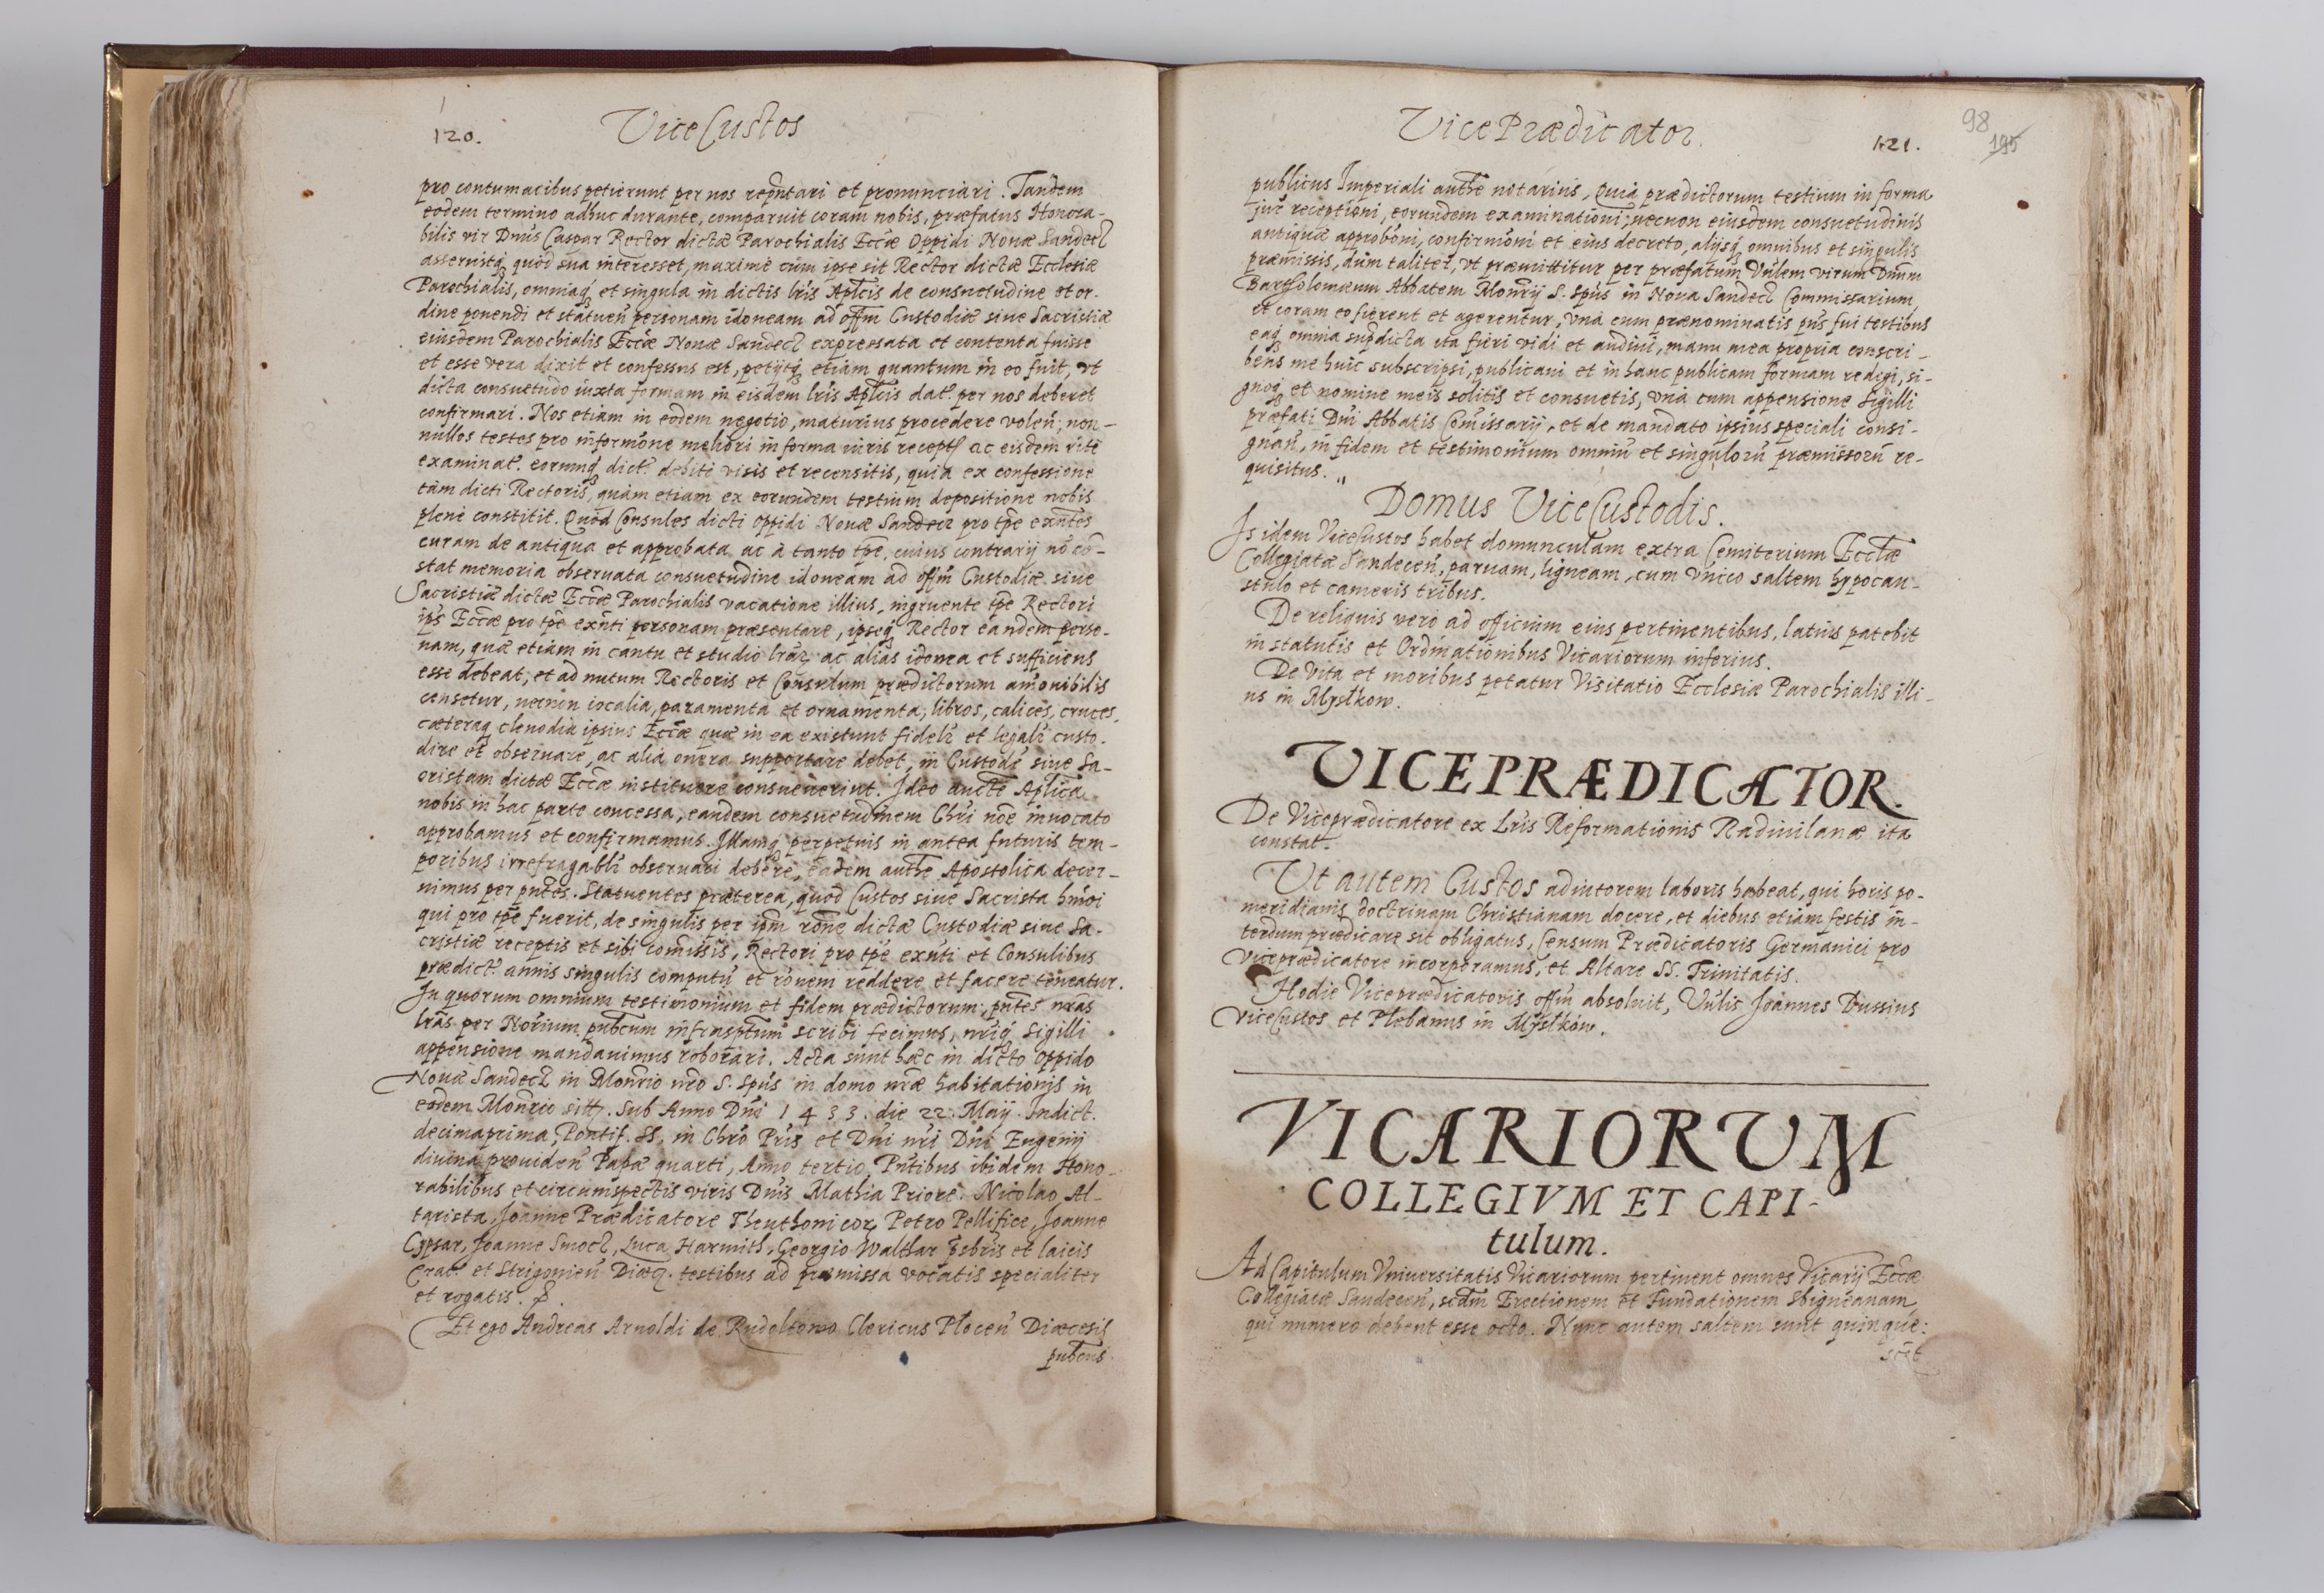 120.
ViceCustos
pro contumacibus petierunt per nos repñtari et pronunciari. Tandem
eodem termino adhuc durante, comparuit coram nobis, præfatus Honora-
bilis vir Dnus Caspar Rector dictæ Parochialis Eccæ Oppidi Nouæ Sandecz
asseruitq quòd sua interesset, maxime cùm ipse sit Rector dictæ Ecclesiæ
Parochialis, omniaq et singula in dictis lris Aplcis de consuetudine et or-
dine ponendi et statuen personam idoneam ad offm Custodiæ siue Sacristiæ
eiusdem Parochialis Eccæ Nouæ Sandecz expressata et contenta fuisse
et esse vera dixit et confessus est, petijtq etiàm quantum in eo fuit, vt
dicta consuetudo iuxta formam in eisdem lris Aplcis dat. per nos deberet
confirmari. Nos etiam in eodem negotio, maturius procedere volen, non-
nullos testes pro informone meliori in forma iuris recept ac eisdem rite
examinat. eorumq dict. debitè visis et recensitis, quia ex confessione
tàm dicti Rectoris, quàm etiam ex eorundem testium depositione nobis
plenè constitit. Quòd Consules dicti Oppidi Nouæ Sandecz pro tpe exñtes
curam de antiqua et approbata ac à tanto tpe, cuius contrarij nō cō-
stat memoria obseruata consuetudine idoneam ad offm Custodiæ siue
Sacristiæ dictæ Eccæ Parochialis vacatione illius, ingruente tpe Rectori
ips Eccæ pro tpe exñti personam præsentare, ipseq Rector eandem perso-
nam, quæ etiàm in cantu et studio lrar ac aliàs idonea et sufficiens
esse debeat, et ad nutum Rectoris et Consulum prædictorum amonibilis
censetur, necnon iocalia, paramenta et ornamenta, libros, calices, cruces,
cæteraq clenodia ipsius Eccæ quæ in ea existunt fidelr et legalr custo-
dire et obseruare, ac alia onera supportare debet, in Custodē siue Sa-
cristam dictæ Eccæ instituere consueuerint. Ideo aucte Aplica
nobis in hac parte concessa, eandem consuetudinem Chri noe inuocato
approbamus et confirmamus. Illamq perpetuis in antea futuris tem-
poribus irrefragablr obseruari debere, eadem authe Apostolica decer-
nimus per pntes. Statuentes præterea, quòd Custos siue Sacrista hmoi
qui pro tpe fuerit, de singulis per ipm rone dictæ Custodiæ siue Sa-
cristiæ receptis et sibi comissis, Rectori pro tpe exñti et Consulibus
prædict. annis singulis computū et ronem reddere et facere teneatur.
In quorum omnium testimonium et fidem prædictorum, pntes nras
lras per Norium pubcum infrasptum scribi fecimus, nriq Sigilli
appensione mandauimus roborari. Acta sunt hæc in dicto Oppido
Nouæ Sandecz in Monrio nro S. Spus in domo nræ habitationis in
eodem Monrio sitt. Sub Anno Dni 1433. die 22. Maij. Indict.
decimaprima, Pontif. SS. in Chro Pris et Dni nri Dni Eugenij
diuina prouiden Papæ quarti, Anno tertio, Pntibus ibidem Hono-
rabilibus et circumspectis viris Dnis Mathia Priore. Nicolao Al-
tarista, Joanne Prædicatore Theuthonicor, Petro Pellifice, Joanne
Cypsar, Joanne Smocz, Luca Harmith, Georgio Walthar psbris et laicis
Crac. et Strigonien Diæc. testibus ad præmissa vocatis specialiter
et rogatis.
Et ego Andreas Arnoldi de Clericus Plocen Diæcesis
pubcus
VicePrædicator.
121.
98
195
publicus Imperiali authe notarius, Quia prædictorum testium in forma
jur receptioni, eorundem examinationi, necnon eiusdem consuetudinis
antiquæ approboni, confirmoni et eius decreto, alijsq omnibus et singulis
præmissis, dum taliter, vt præmittitur per præfatum Vnlem virum Dnum
Bartholomæum Abbatem Monrij S. Spus in Noua Sandecz Commissarium,
et coram eo fierent et agerentur, vnà cum prænominatis pns fui testibus
eaq omnia supdicta ita fieri vidi et audiui, manu mea propria conscri-
bens me huic subscripsi, publicaui et in hanc publicam formam redegi, si-
gnoq et nomine meis solitis et consuetis, vnà cum appensione Sigilli
præfati Dni Abbatis Comissarij, et de mandato ipsius speciali consi-
gnaui, in fidem et testimonium omniū et singulorū præmissorū re-
quisitus.
Domus ViceCustodis.
Is idem ViceCustos habet domunculam extra Cemiterium Ecclæ
Collegiatæ Sandecen, paruam, ligneam, cum vnico saltem hypocau-
stulo et cameris tribus.
De reliquis vero ad officium eius pertinentibus, latius patebit
in statutis et Ordinationibus Vicariorum inferius.
De vita et moribus petatur Visitatio Ecclesiæ Parochialis illi-
us in Mystkow.
VICEPRÆDICATOR.
De Viceprædicatore ex Lris Reformationis Radiuilanæ ita
constat.
Ut autem Custos adiutorem laboris habeat, qui horis po-
meridianis doctrinam Christianam docere, et diebus etiàm festis in-
terdum prædicare sit obligatus, Censum Prædicatoris Germanici pro
viceprædicatore incorporamus, et Altare SS. Trinitatis.
Hodie Viceprædicatoris offm absoluit, Vnlis Joannes Dussius
ViceCustos et Plebanus in Mystkow.
VICARIORUM
COLLEGIVM ET CAPI-
tulum.
Ad Capitulum Vniuersitatis Vicariorum pertinent omnes Vicarij Eccæ
Collegiatæ Sandecen, scdm Erectionem et Fundationem Sbigneanam,
qui numero debent esse octo. Nunc autem saltem sunt quinque: